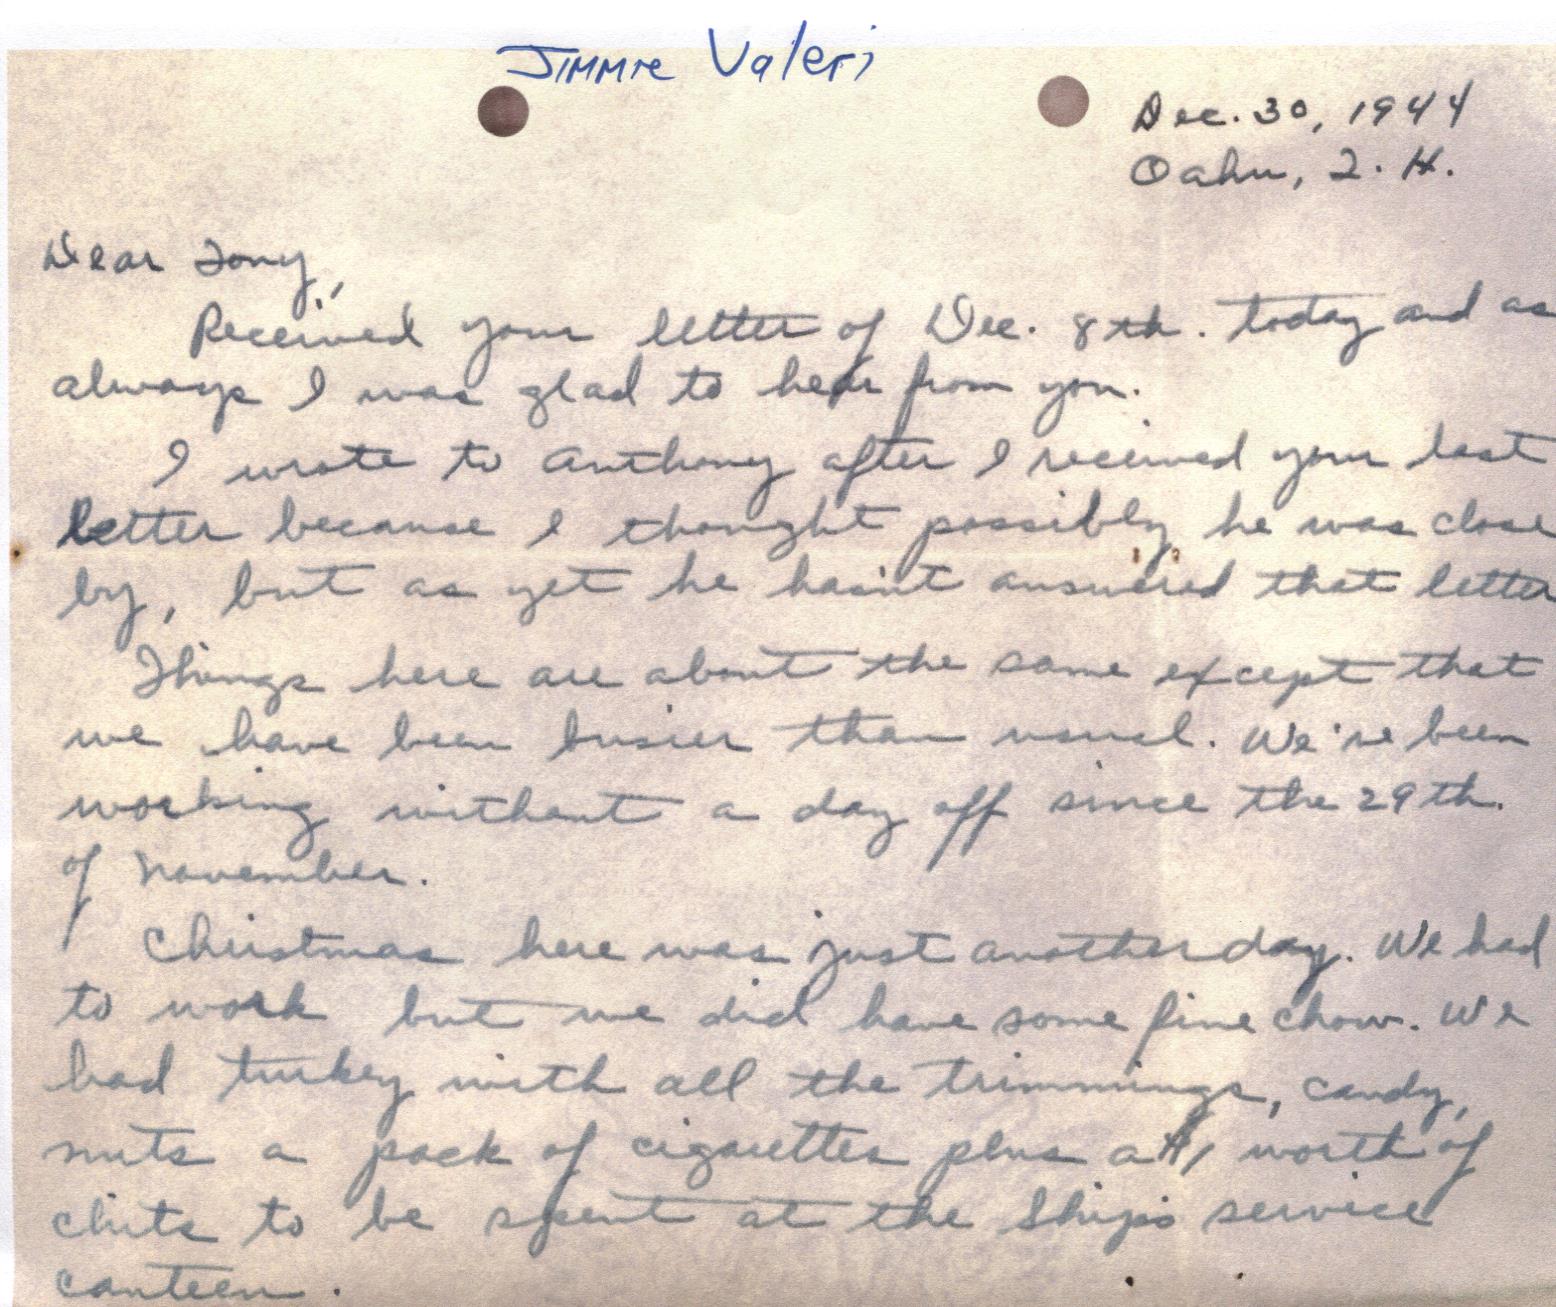 Jimmie Valeri
Dec. 30, 1944
Oahu, T. H.
Dear Tony,
Received your letter of Dec. 8th. today and as
always I was glad to hear from you.
I wrote to Anthony after I received your last
letter because I thought possibly he was close
by, but as yet he hasn't answered that letter
Things here are about the same except that
we have been busier than usual. We've been
working without a day off since the 29th.
of November.
Christmas here was just another day. We had
to work but we did have some fine chow. We
had turkey with all the trimmings, candy,
nuts a pack of cigarettes plus a $1 worth of
chits to be spent at the Ship's service
canteen.